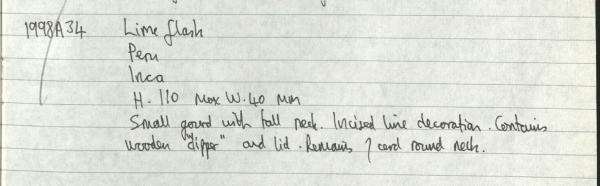 1998A34 Lime flask
Peru
Inca
H. 110 Max W. 40 mm
Small gourd with tall neck. Incised line decoration. Contains
wooden "dipper" and lid. Remains of cord round neck.